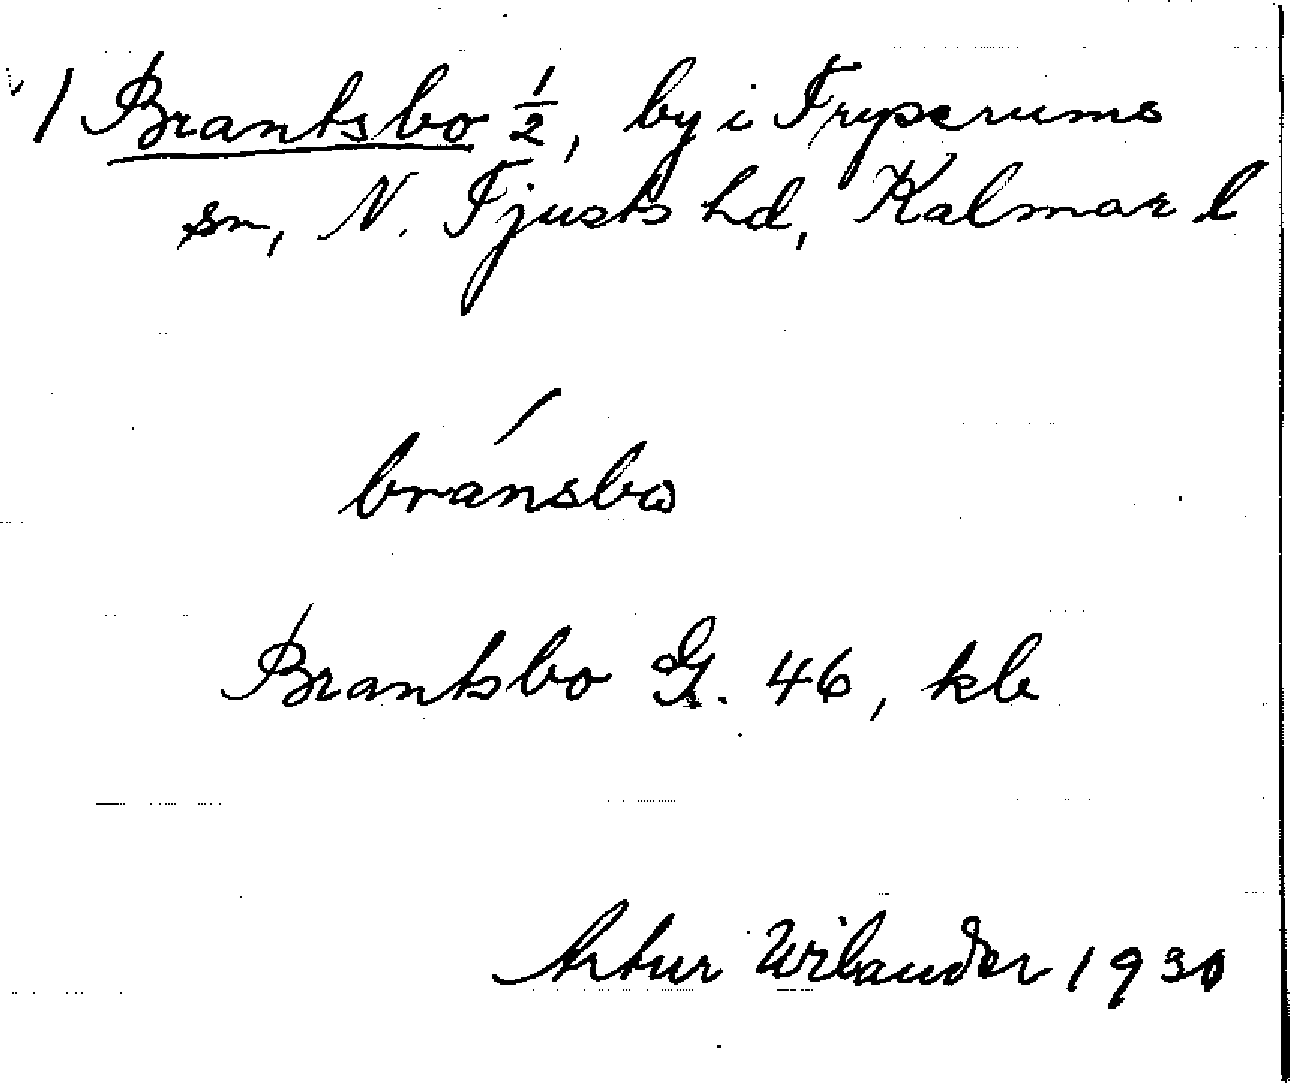 1 Brantsbo ½, by i Tryserums
sn, N. Tjusts hd, Kalmar l
bránsbω
Brantsbo G. 46, kb
Artur Wilander 1930